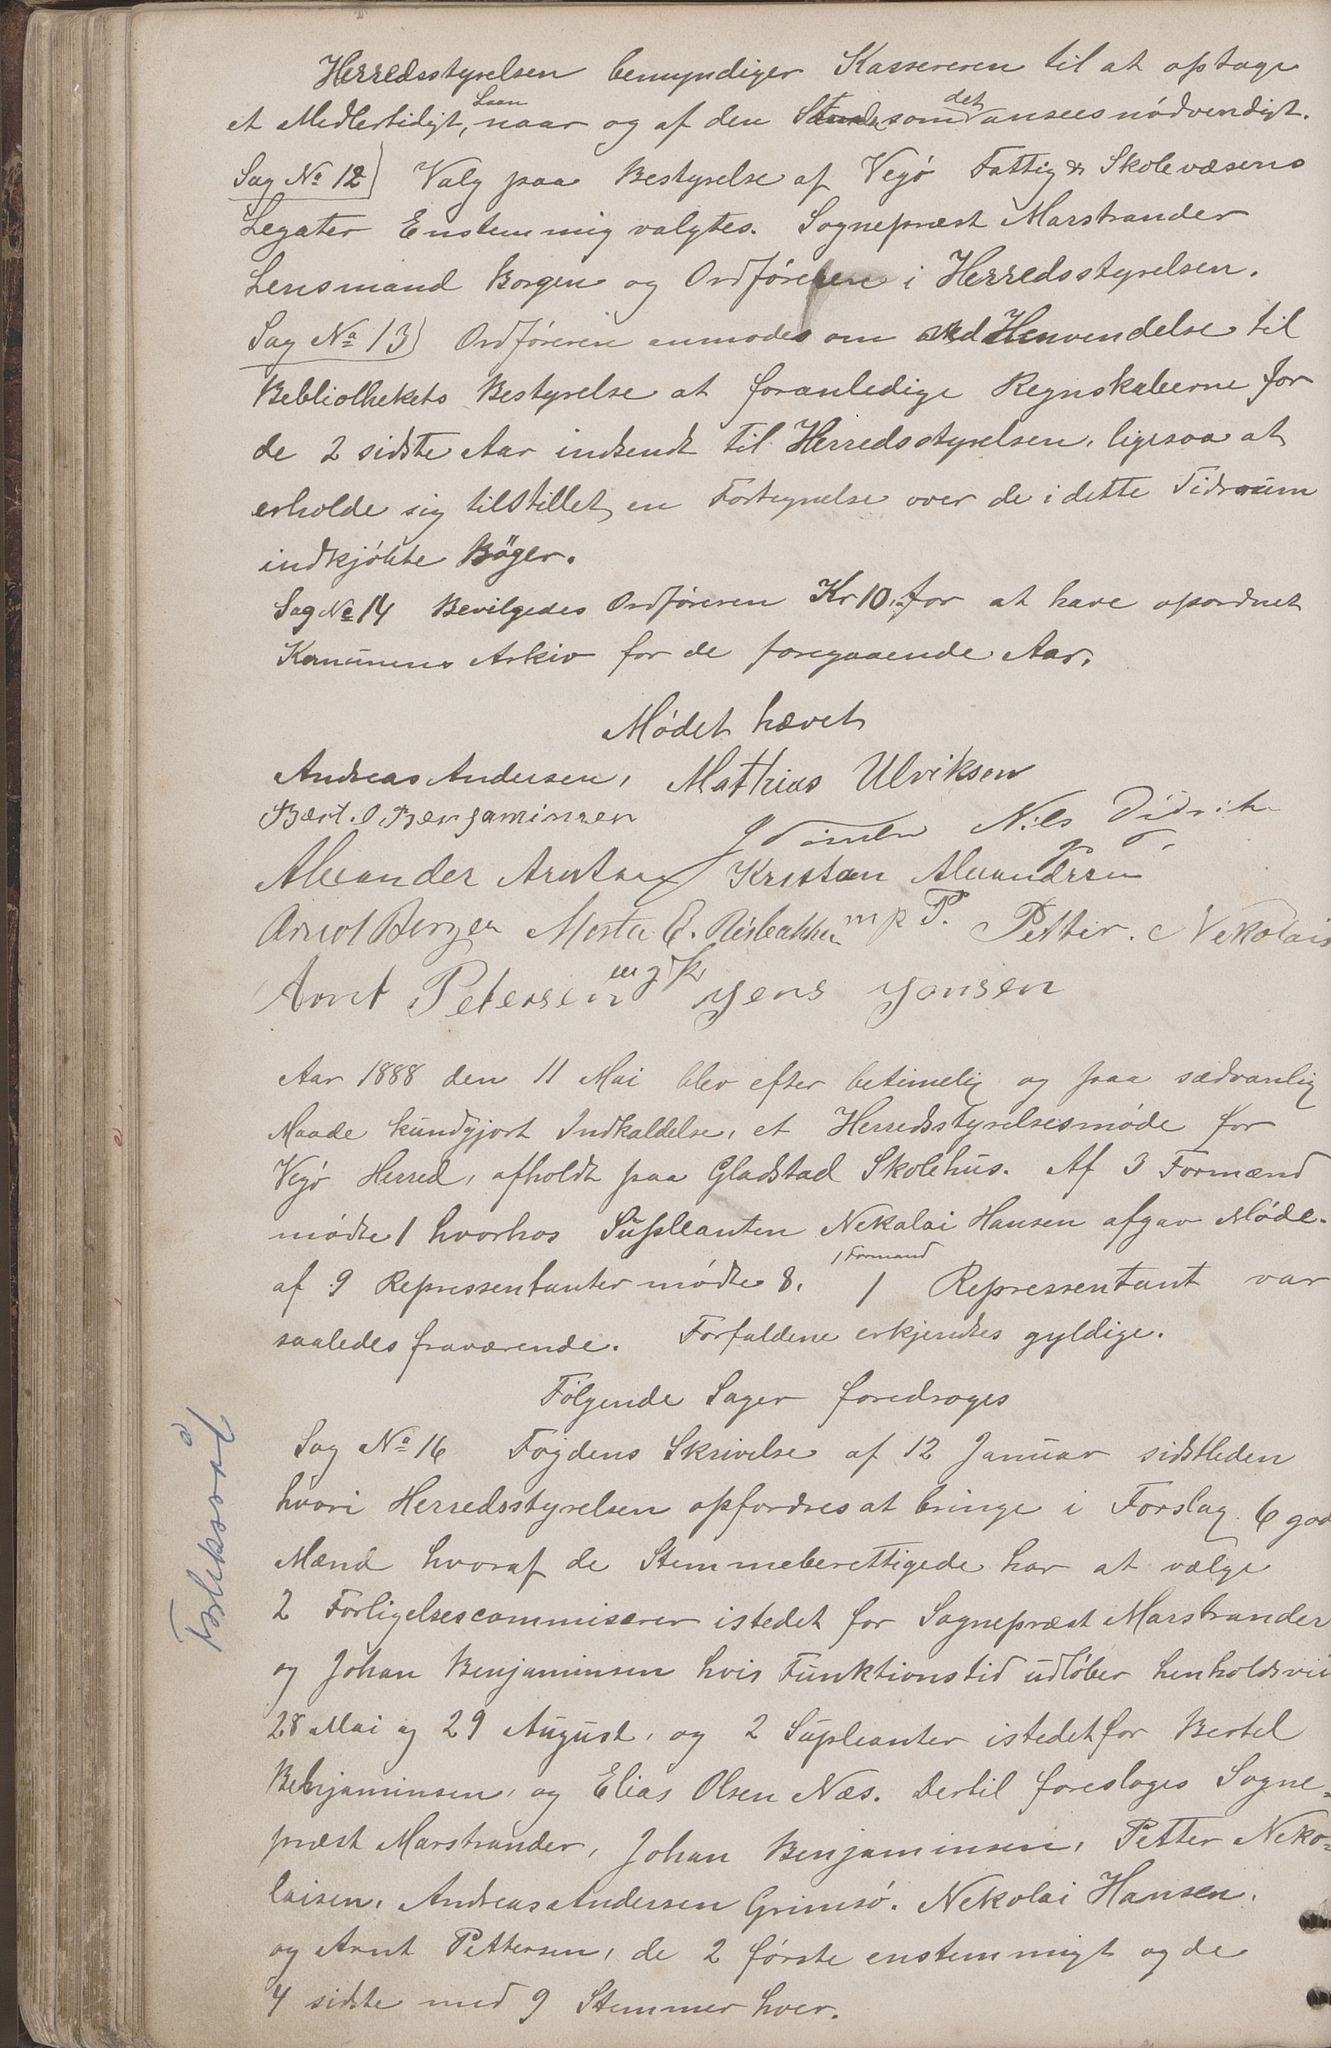 Herredsstyrelsen bemyndiger Kassereren til at optage
et Medlertidigt, Laan naar og af den som det ansees nödvendigt.
Sag No 12) Valg paa Bestyrelse af Vegö Fattig & Skolevæsens
Legater Enstemmig valgtes. Sognepræst Marstrander
Lensmand Borgen og Ordföreren i Herredsstyrelsen.
Sag No 13) Ordföreren anmodes om ved Henvendelse til
Bebliothekets Bestyrelse at foranledige Regnskaberne for
de 2 sidste Aar indsendt til Herredsstyrelsen, ligesaa at
erholde sig tilstillet en Fortegnelse over de i dette Tidsrum
indkjöbte Böger.
Sag No 14 Bevilgedes Ordföreren Kr 10,- for at have opordnet
Komunens Arkiv for de foregaaende Aar.
Mödet hævet
Andreas Andersen, Mathias Ulriksen
Bært. O Benjaminsen
Nils Didrik
Alexander Arntsen Kristan Alexandersen
Arnot Borgen E. m p P. Petter. Nekolais
Arnt Petersen Jens Jensen
Aar 1888 den 11 Mai blev efter betimelig og paa sædvanlig
Maade kundgjort Indkaldelse, et Herredsstyrelsesmöde for
Vegö Herred, afholdt paa Gladstad Skolehus. Af 3 Formænd
mödte 1 hvorhos Supleanten Nekolai Hansen afgav Möde.
af 9 Repressentanter mödte 8. 1 Formand 1 Repressentant var
saaledes fraværende. Forfaldene erkjendtes gyldige.
Fölgende Sager foredroges
Sag No 16 Fogdens Skrivelse af 12 Januar sidstleden
hvori Herredsstyrelsen opfordres at bringe i Forslag 6 god
Mænd hvoraf de Stemmeberettigede har at vælge
Forliksråd
2 Forligelsescommisærer istedet for Sognepræst Marstrander
og Johan Benjaminsen hvis Funktionstid udlöber henholdsvii
28 Mai og 29 August, og 2 Supleanter istedetfor Bertel
Benjaminsen, og Elias Olsen Næs. Dertil foresloges Sogne-
præst Marstrander, Johan Benjaminsen, Petter Neko-
laisen, Andreas Andersen Grimsö. Nekolai Hansen.
og Arnt Pettersen, de 2 förste enstemmigt og de
4 sidste med 9 Stemmer hver.